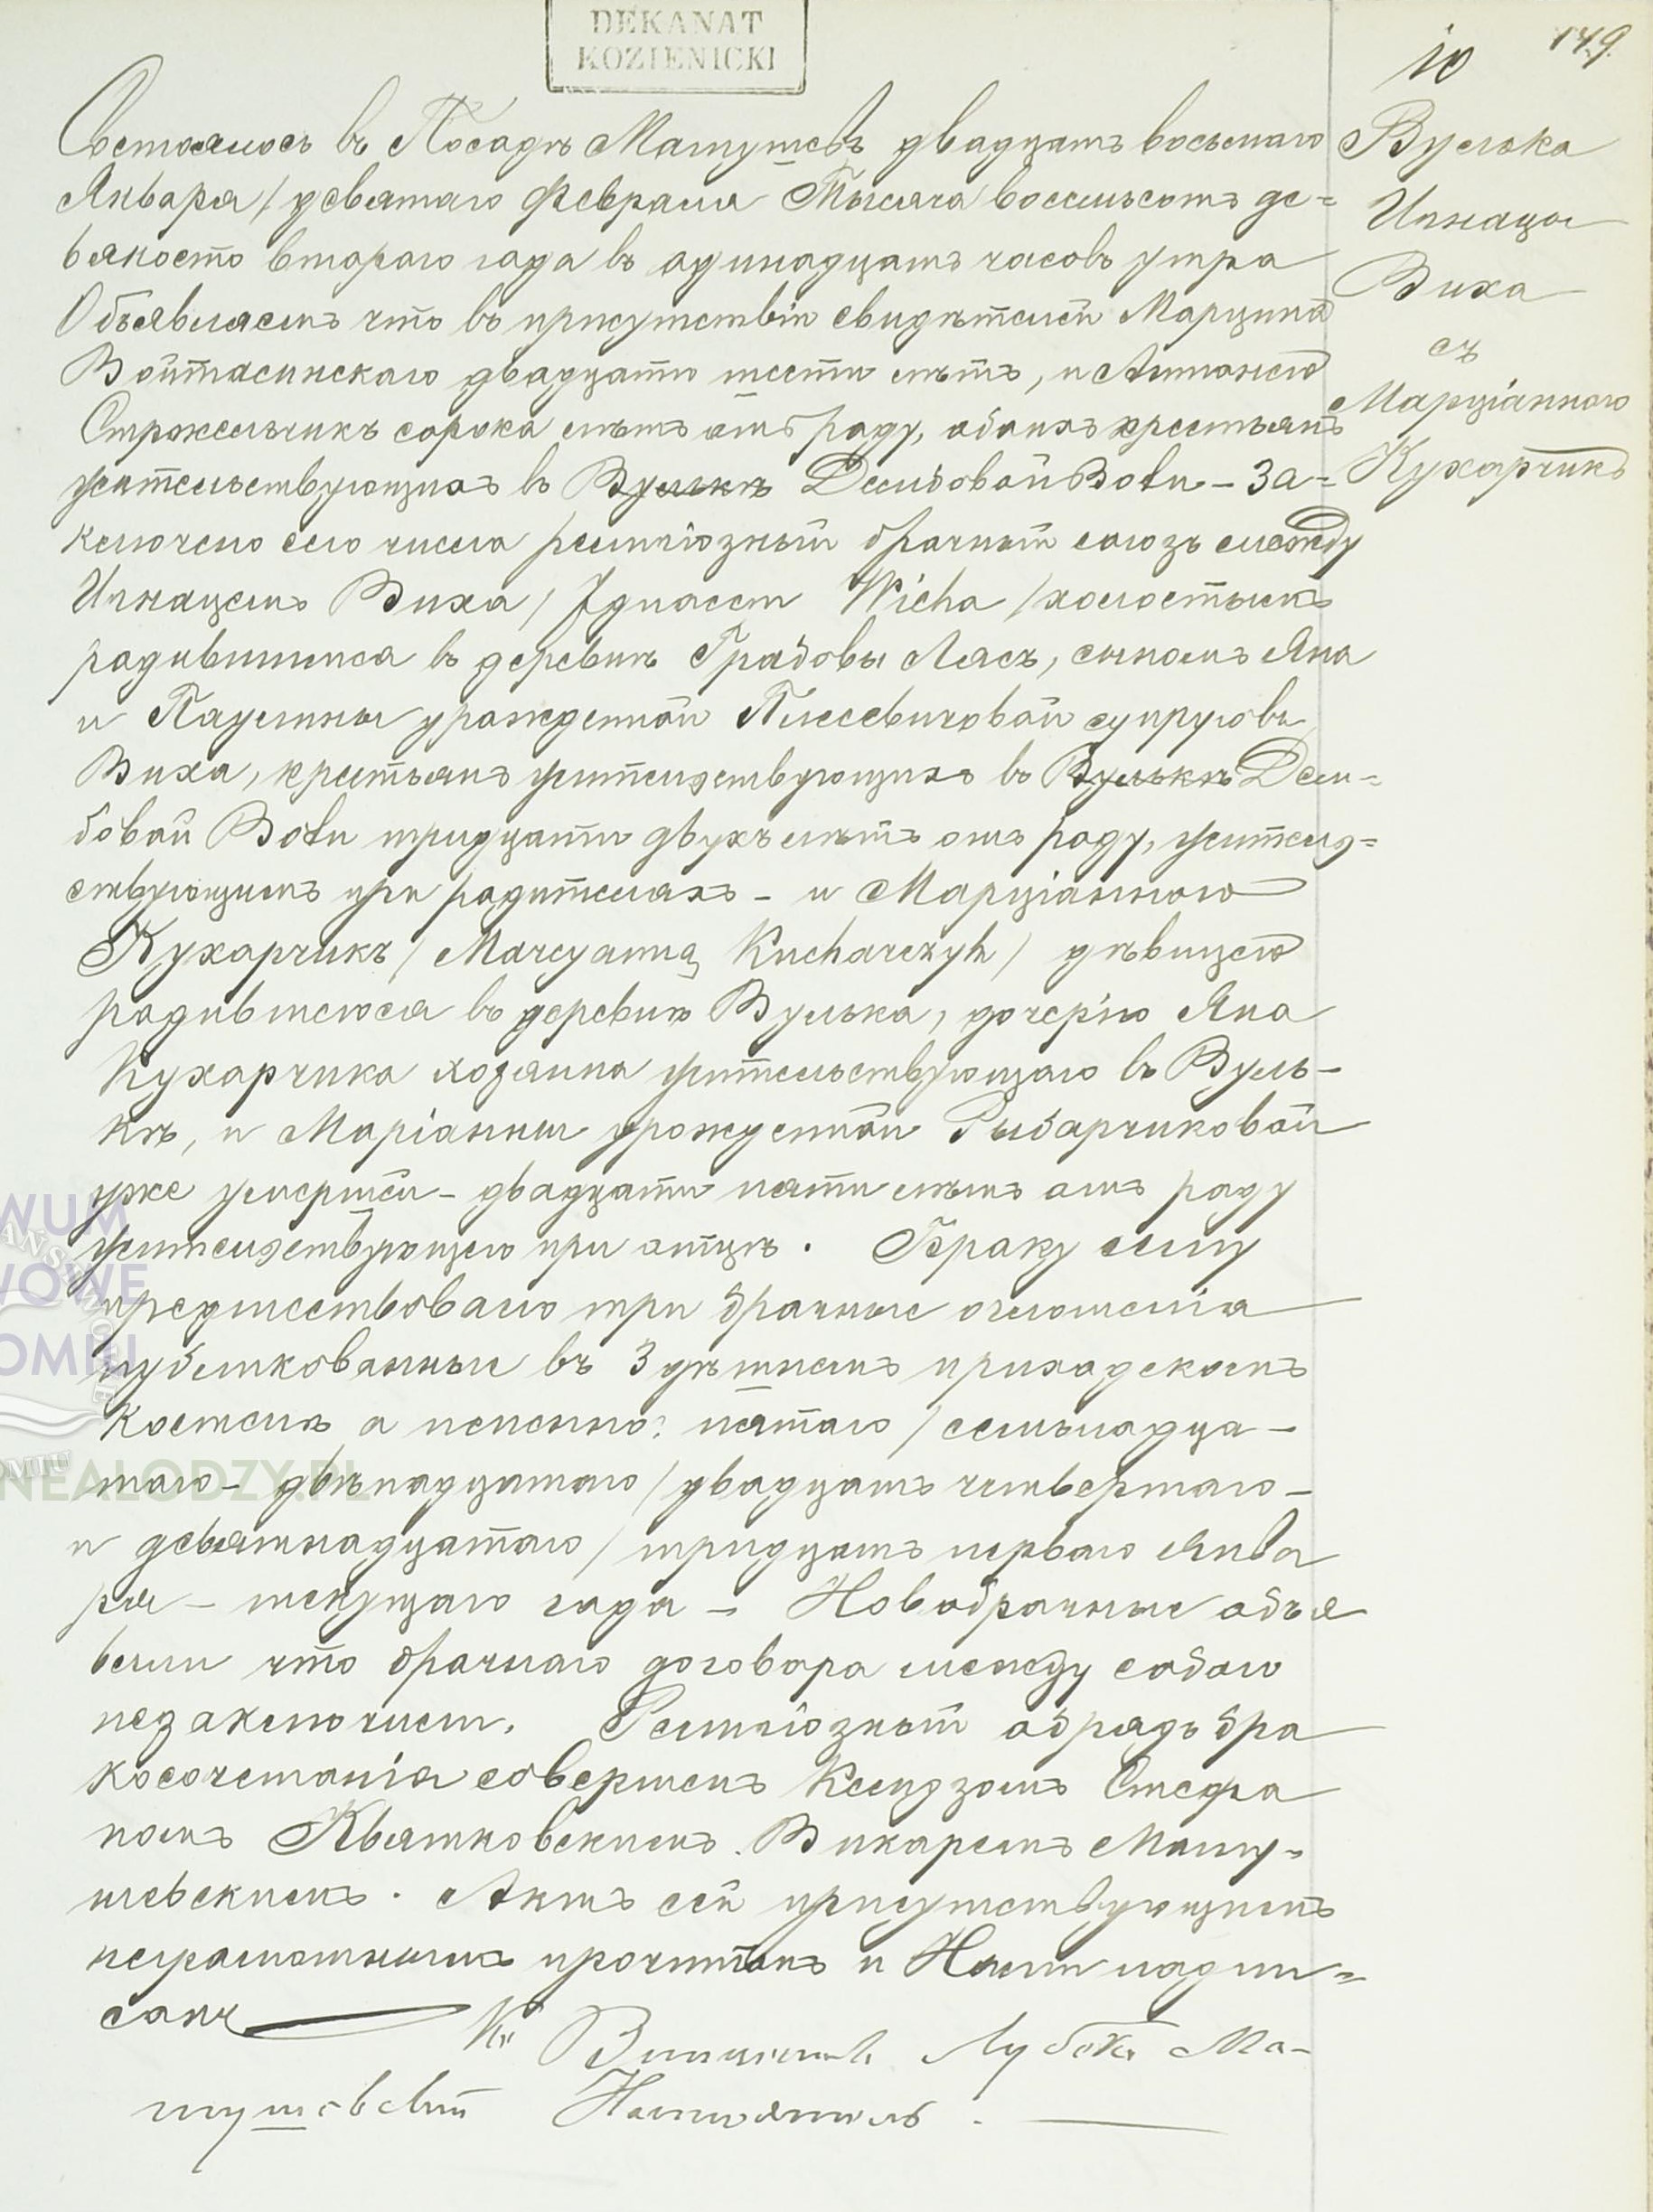 DEKANAT
KOZIENICKI
149.
10
Вулька
Игнацы
Виха
съ
Марціанною
Кухарчикъ
Состоялось въ Посадѣ Магнушевъ двадцать восьмаго
Января / девятаго Февраля Тысяча восемьсотъ де=
вяносто втораго года въ одинадцать часовъ утра
Объявляемъ что въ присутствіи свидѣтелей Марцина
Войтасинскаго двадцати шести лѣтъ, и Антонего
Стржельчикъ сорока лѣтъ отъ роду, обоихъ крестьянъ
жительствующихъ въ Вулькѣ Дембовой Воли - За=
ключено сего числа религіозный брачный союзъ между
Игнацемъ Виха / Ignacem Wicha / холостымъ
родившимся въ деревнѣ Грабовы Лясъ, сыномъ Яна
и Паулины урожденной супруговъ
Виха, крестьянъ жительствующихъ въ Вулькѣ Дем=
бовой Воли тридцати двухъ лѣтъ отъ роду, житель=
ствующимъ при родителяхъ - и Марціанною
Кухарчикъ / Marcyanną Kucharczyk / дѣвицею
родившеюся въ деревнѣ Вулька, дочерію Яна
Кухарчика хозяина жительствующаго въ Вуль-
кѣ, и Маріанны урожденной Рыбарчиковой
уже умершей - двадцати пяти лѣтъ отъ роду
жительствующею при отцѣ. Браку сему
предшествовало три брачные оглошенія
публикованные въ Здѣшнемъ приходскомъ
Костелѣ а именно: пятаго / семьнадца-
таго - двѣнадцатаго / двадцать четвертаго -
и девятнадцатаго / тридцать перваго Янва
ря - текущаго года - Новобрачные объя
вили что брачнаго договора между собою
незаключили. Религіозный обрядъ бра
косочетанія совершенъ Ксендзомъ Стефа
номъ Квятковскимъ Викаремъ Магну-
шевскимъ. Актъ сей присутствующимъ
неграмотнымъ прочитанъ и Нами подпи=
санъ
Кс Лубеха Ма-
гнушевскій Настоятель.
WUM
WOWE
OMIU
GENEALODZY.PL